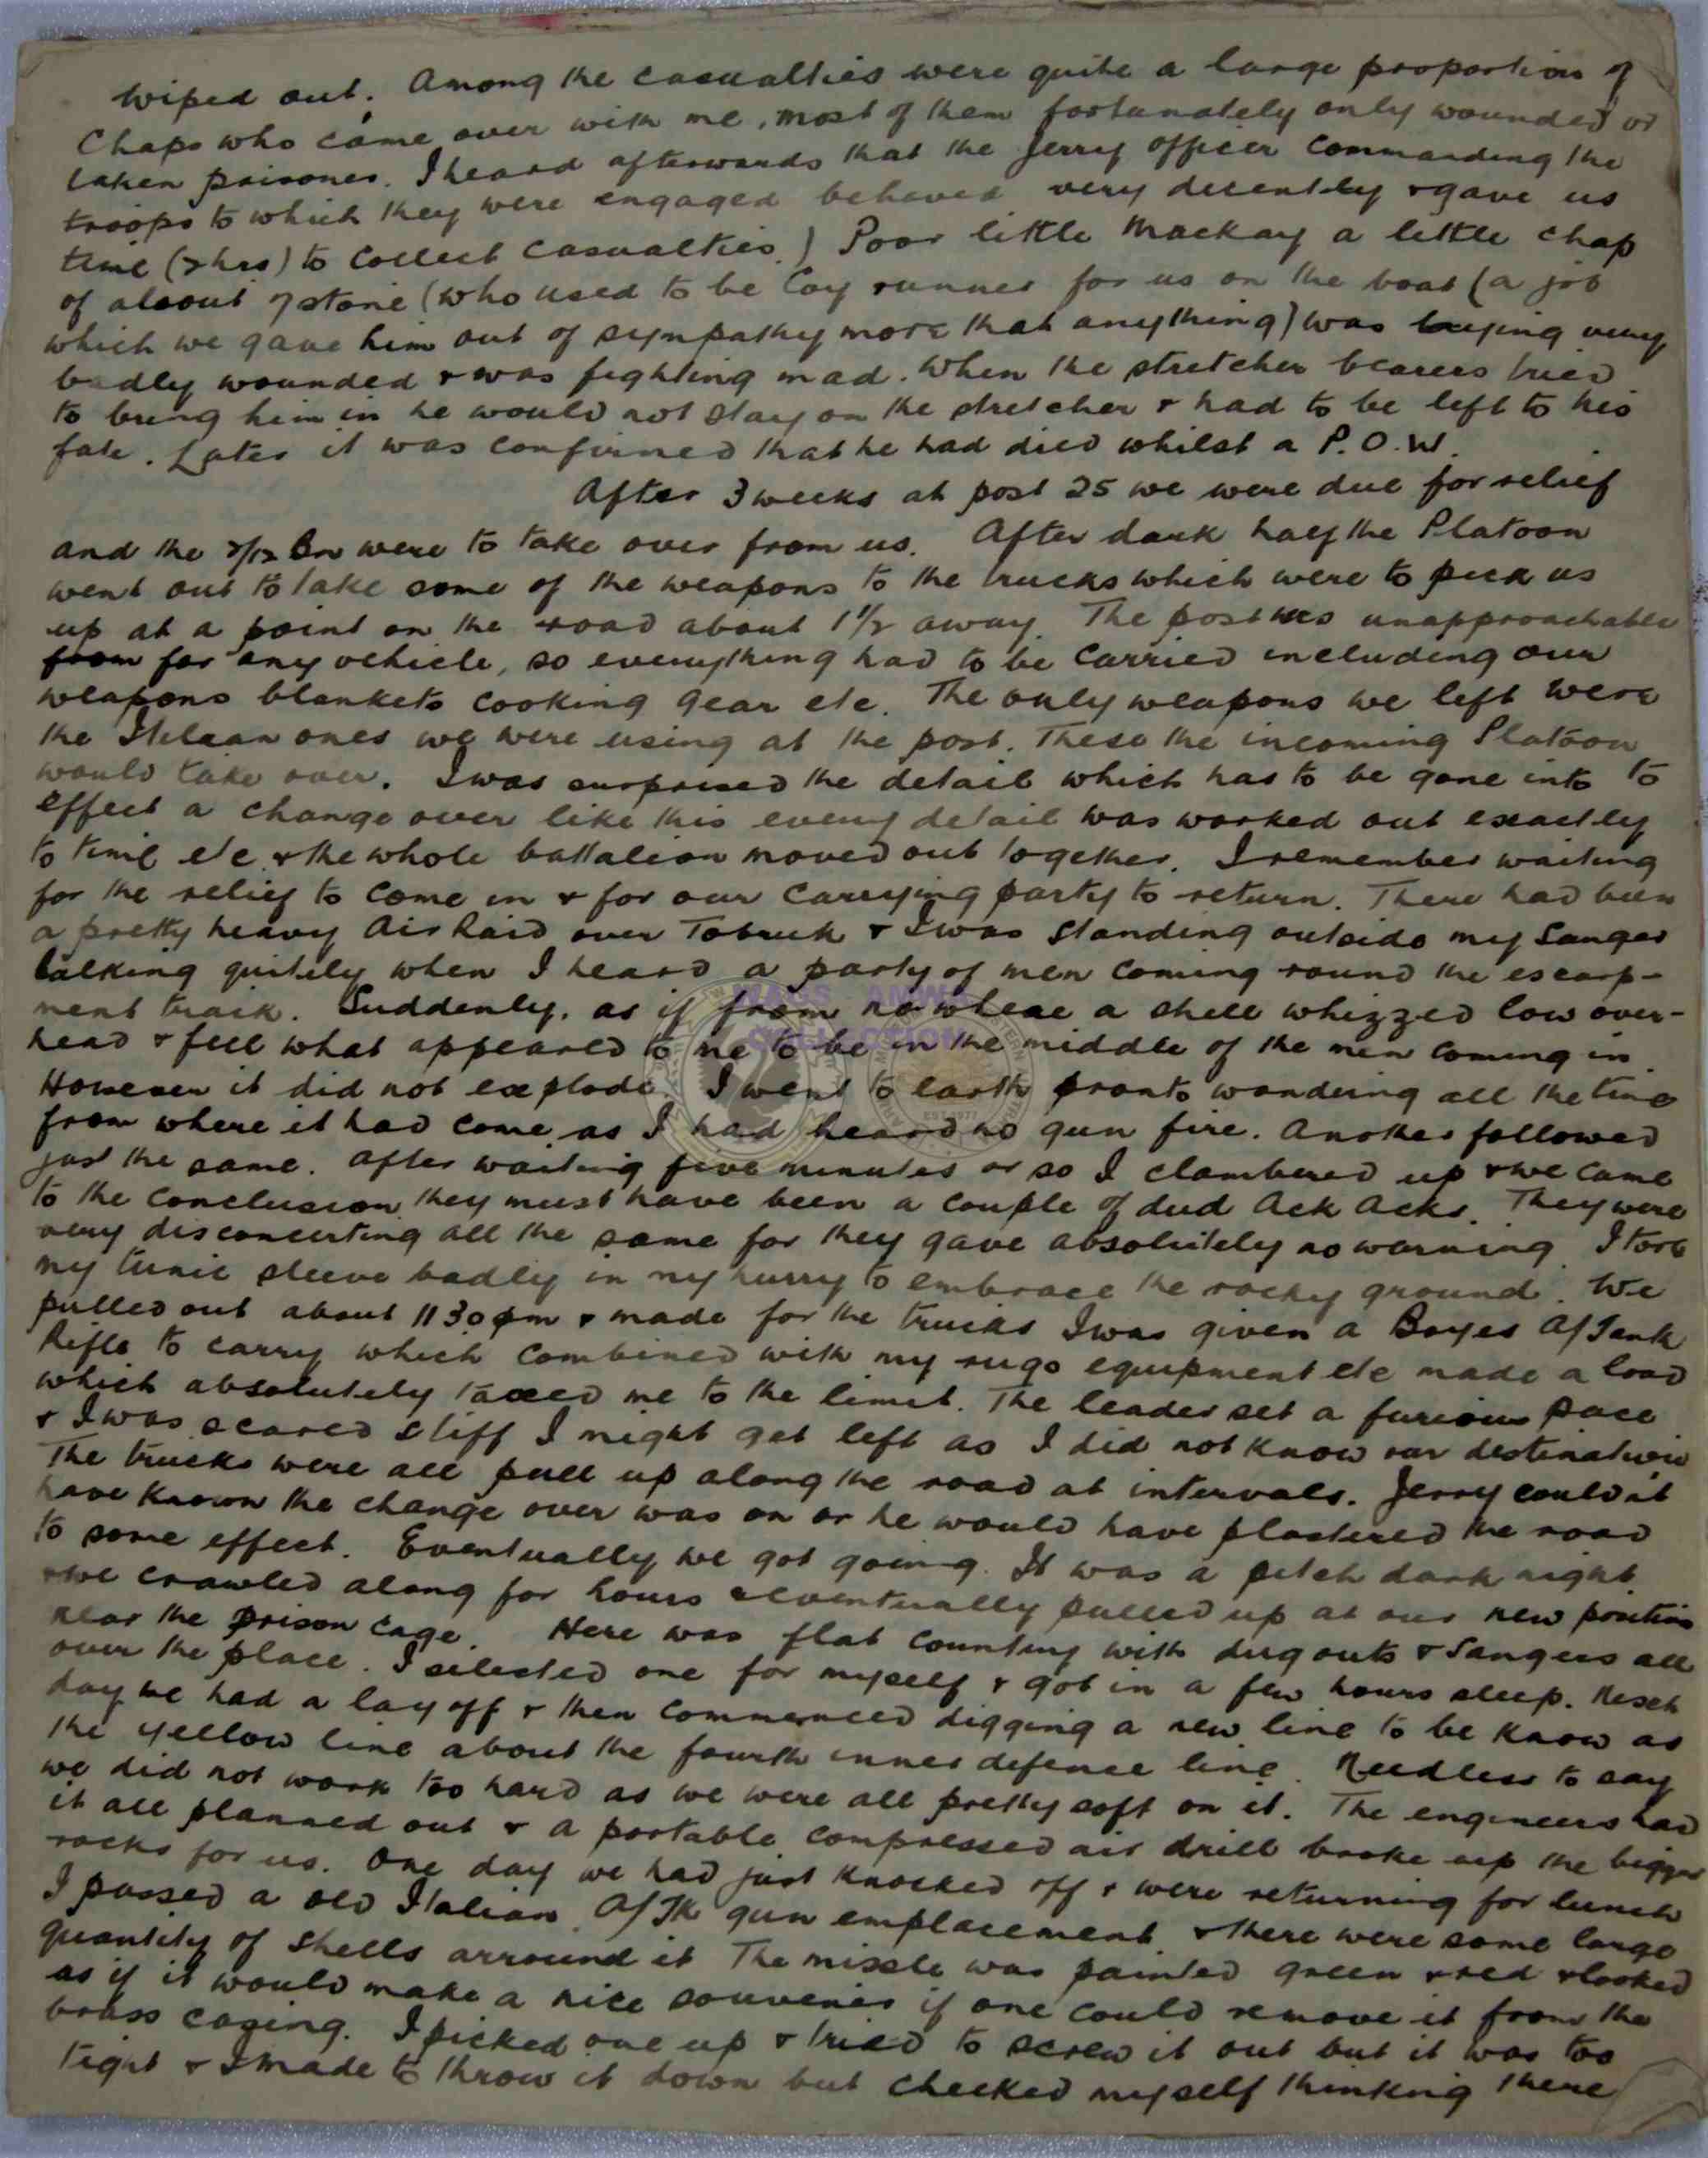 wiped out. Among the casualties were quite a large proportion of
Chaps who came over with me, most of them fortunately only wounded or
taken prisoner. I heard afterwards that the Jerry officer Commanding the
troops to which they were engaged behaved very decently & gave us
time (2 hrs) to Collect Casualties.) Poor little Mackay a little chap
of about 7 stone (who used to be Coy runner for us on the boat (a job
which we gave him out of sympathy more that anything) was laying very
badly wounded & was fighting mad. When the stretcher bearers tried
to bring him in he would not stay on the stretcher & had to be left to his
fate. Later it was confirmed that he had died whilst a P.O.W.
After 3 weeks at post 25 we were due for relief
and the 2/12 Bn were to take over from us. After dark half the Platoon
went out to take some of the weapons to the trucks which were to pick us
up at a point on the road about 1½ away. The post was unapproachable
from for any vehicle, so everything had to be carried including our
weapons blankets cooking gear etc. The only weapons we left were
the Italian ones we were using at the post. These the incoming Platoon
would take over. I was surprised the detail which has to be gone into to
effect a change over like this every detail was worked out exactly
to time etc & the whole battalion moved out together. I remember waiting
for the relief to come in & for our carrying party to return. There had been
a pretty heavy Air Raid over Tobruk & I was standing outside my Sanger
talking quitely when I heard a party of men coming round the escarp-
ment track. Suddenly, as if from nowhere a shell whizzed low over-
head & fell what appeared to me to be in the middle of the men coming in.
However it did not explode. I went to earth pronto wondering all the time
from where it had come as I had heard no gun fire. Another followed
just the same. After waiting five minutes or so I clambered up & we came
to the conclusion they must have been a couple of dud Ack Acks. They were
very disconcerting all the same for they gave absolutely no warning. I tore
my tunic sleeve badly in my hurry to embrace the rocky ground. We
pulled out about 11 30 pm & made for the trucks I was given a Boyes A/Tank
Rifle to carry which combined with my rugs equipment etc made a load
which absolutely taxed me to the limit. The leader set a furious pace
& I was scared stiff I might get left as I did not know our destination
The trucks were all pull up along the road at intervals. Jerry couldnt
have known the change over was on or he would have plastered the road
to some effect. Eventually we got going. It was a pitch dark night
& we crawled along for hours & eventually pulled up at our new position
near the prison cage. Here was flat country with dug outs & Sangers all
over the place. I selected one for myself & got in a few hours sleep. Next
day we had a lay off & then commenced digging a new line to be know as
the yellow line about the fourth inner defence line. Needless to say
we did not work too hard as we were all pretty soft on it. The engineers had
it all planned out & a portable compressed air drill broke up the bigger
rocks for us. One day we had just knocked off & were returning for lunch
I passed a old Italian A/Tk gun emplacement & there were some large
quantity of shells arround it The missle was painted green & red & looked
as if it would make a nice souvenir if one could remove it from the
brass casing. I picked one up & tried to screw it out but it was too
tight & I made to throw it down but checked myself thinking there
WAGS ANWM
COLLECTION